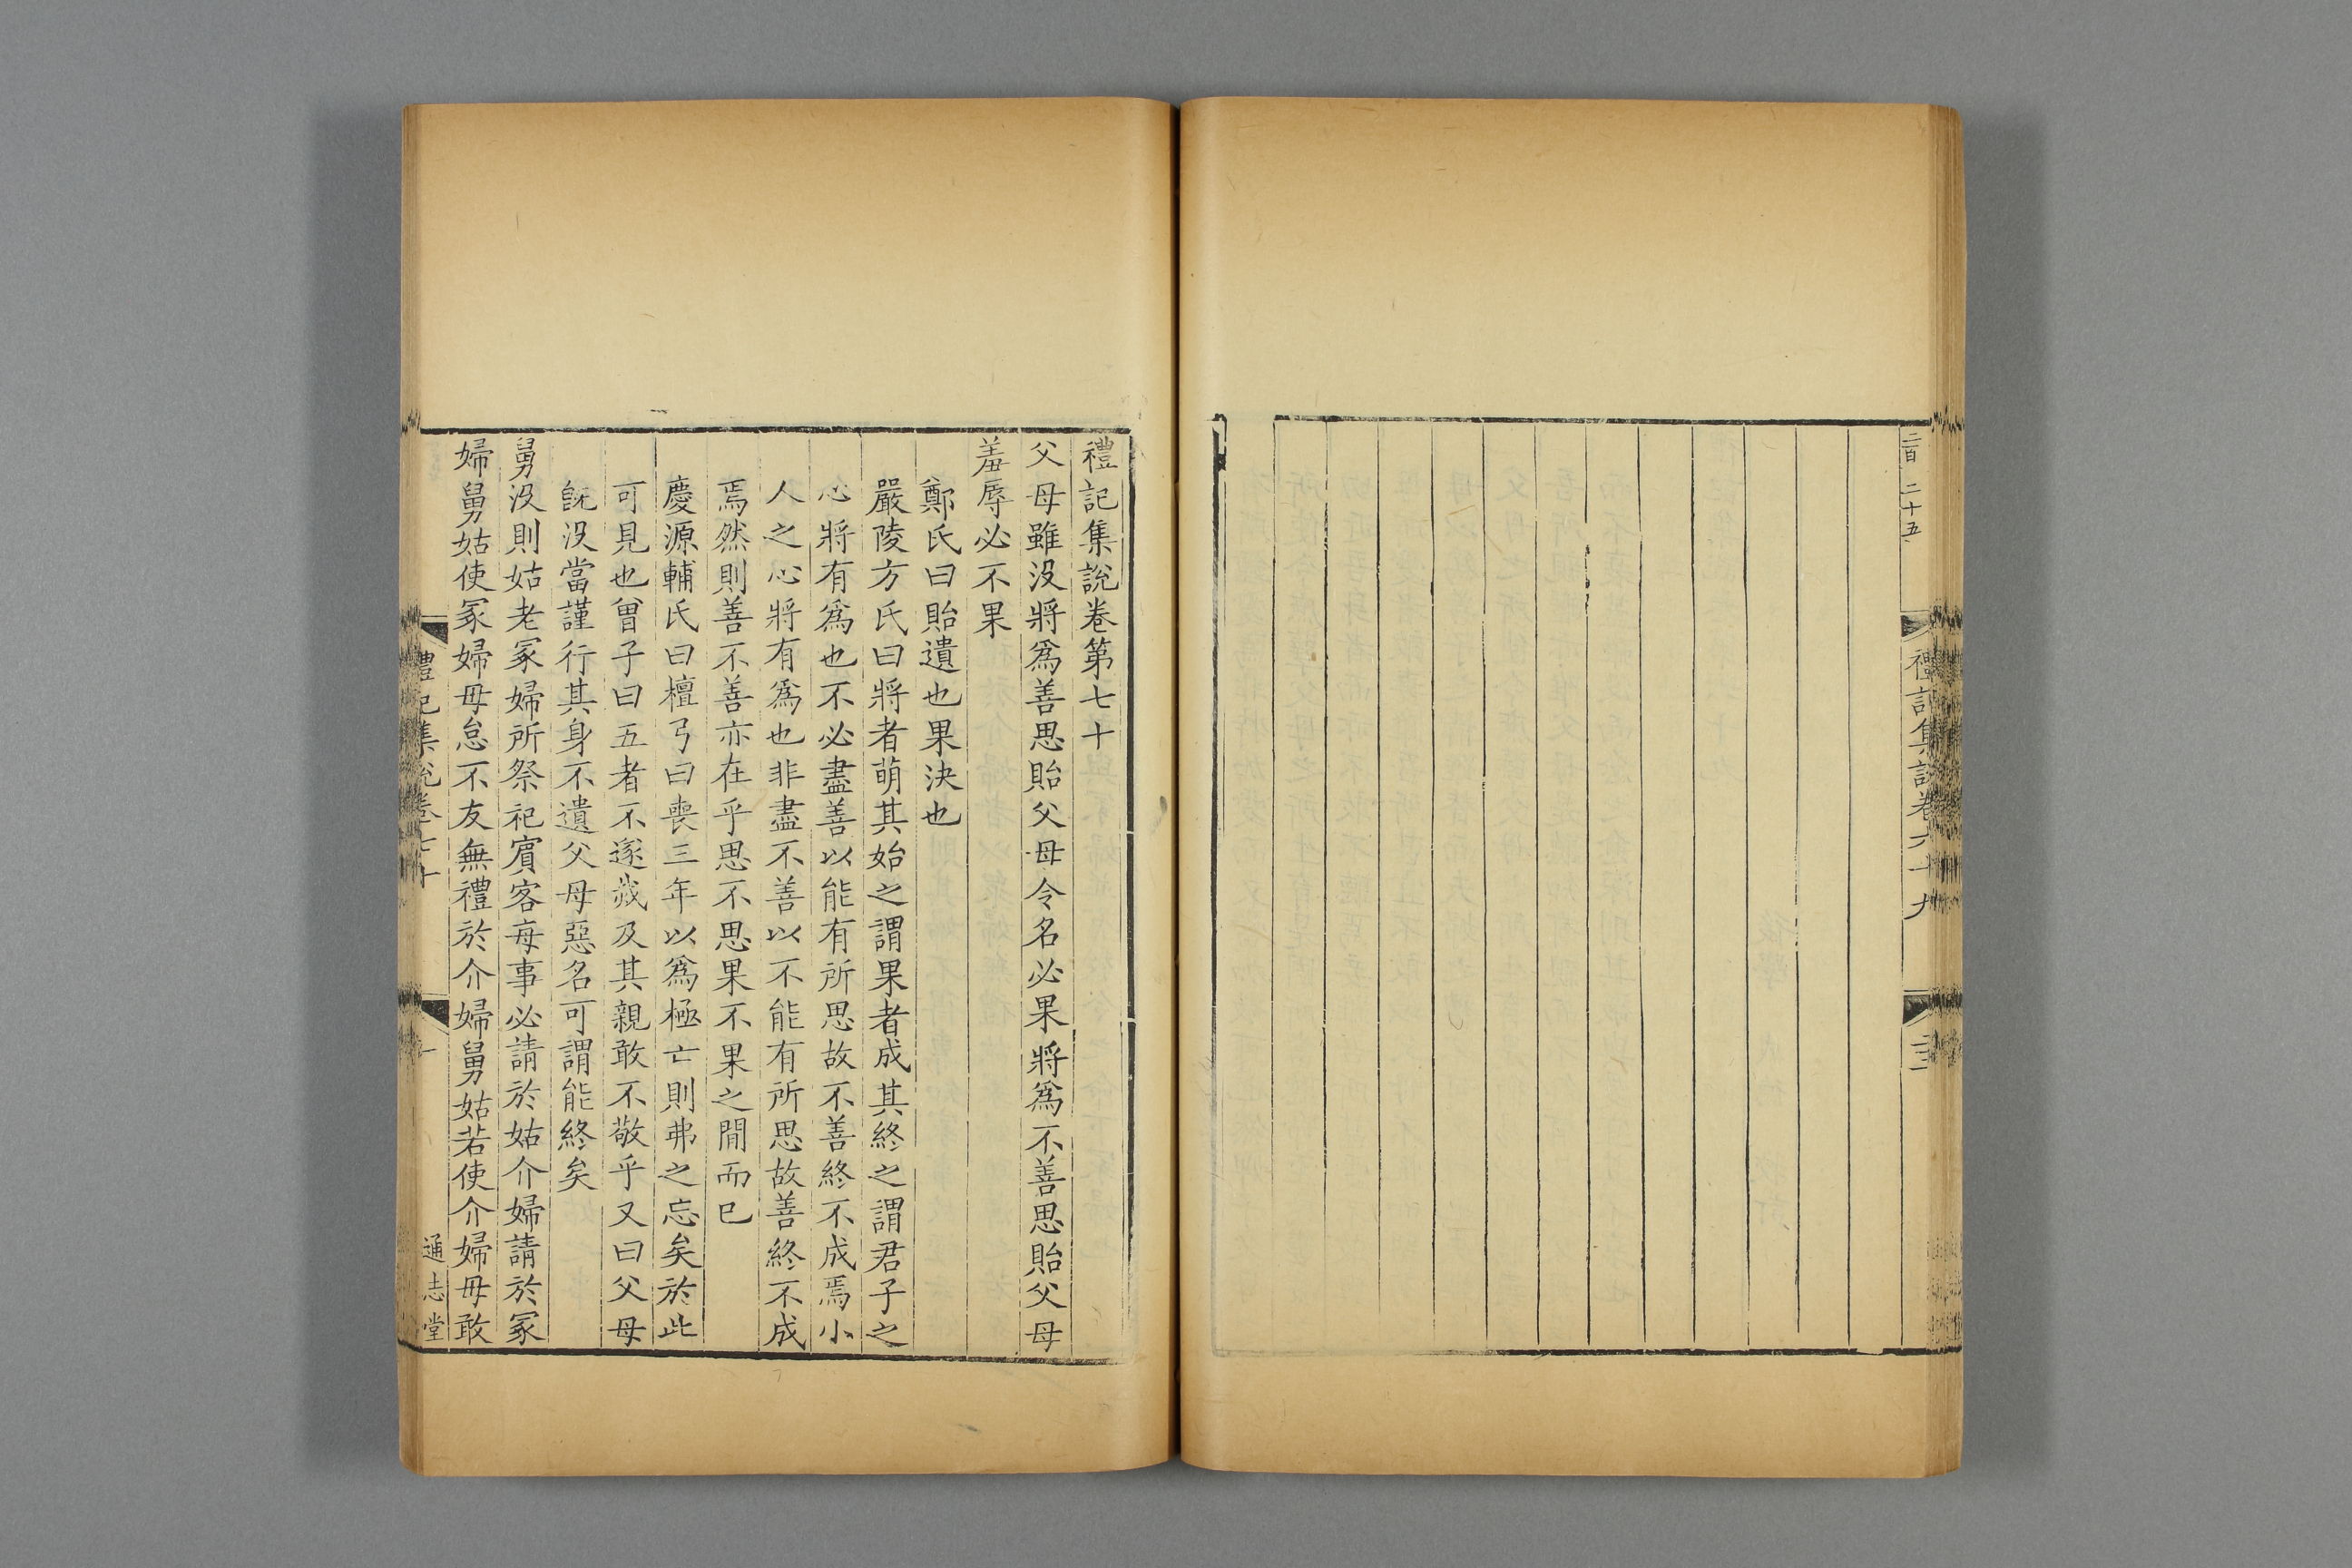 二百二十五
禮記集說卷六十九
三三
禮記集說卷第七十
父母雖没將爲善思貽父母令名必果將爲不善思貽父母
羞辱必不果
鄭氏曰貽遺也果決也
嚴陵方氏曰將者萌其始之謂果者成其終之謂君子之
心將有爲也不必盡善以能有所思故不善終不成焉小
人之心將有爲也非盡不善以不能有所思故善終不成
焉然則善不善亦在乎思不思果不果之間而已
慶源輔氏曰檀弓曰喪三年以爲極亡則弗之忘矣於此
可見也曾子曰五者不遂烖及其親敢不敬乎又曰父母
旣没當謹行其身不遺父母惡名可謂能終矣
舅没則姑老冢婦所祭祀賓客每事必請於姑介婦請於冢
婦舅姑使冢婦毋怠不友無禮於介婦舅姑若使介婦毋敢
禮記集說卷七十
一
通志堂